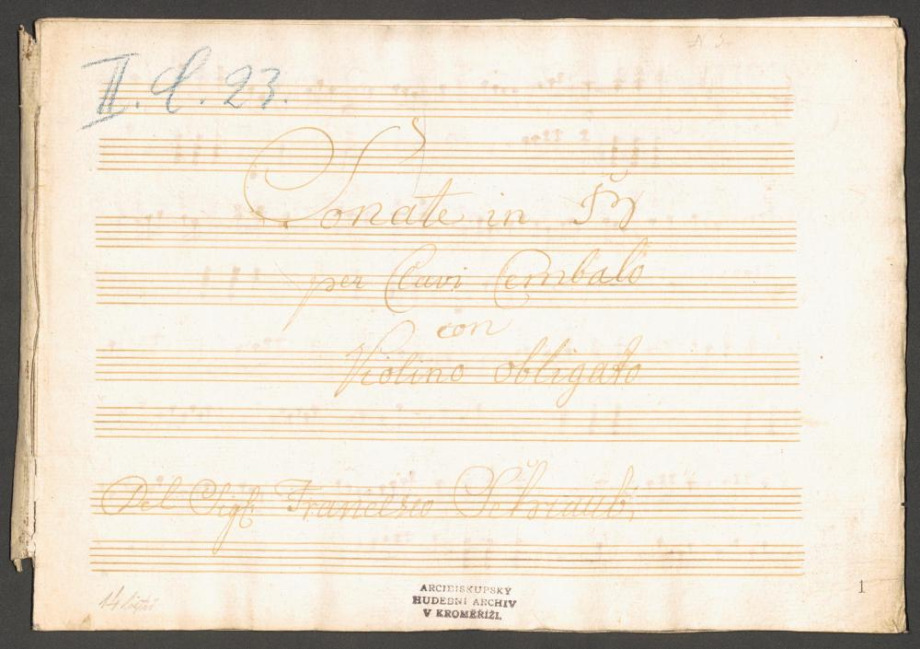 II. C. 23.
N 3
Sonate in
per Clavi Cembalo
con
Violino obligato
Del Sigl: Francisco
14 listů
ARCIBISKUPSKÝ
HUDEBNÍ ARCHIV
V KROMĚŘÍŽI.
1